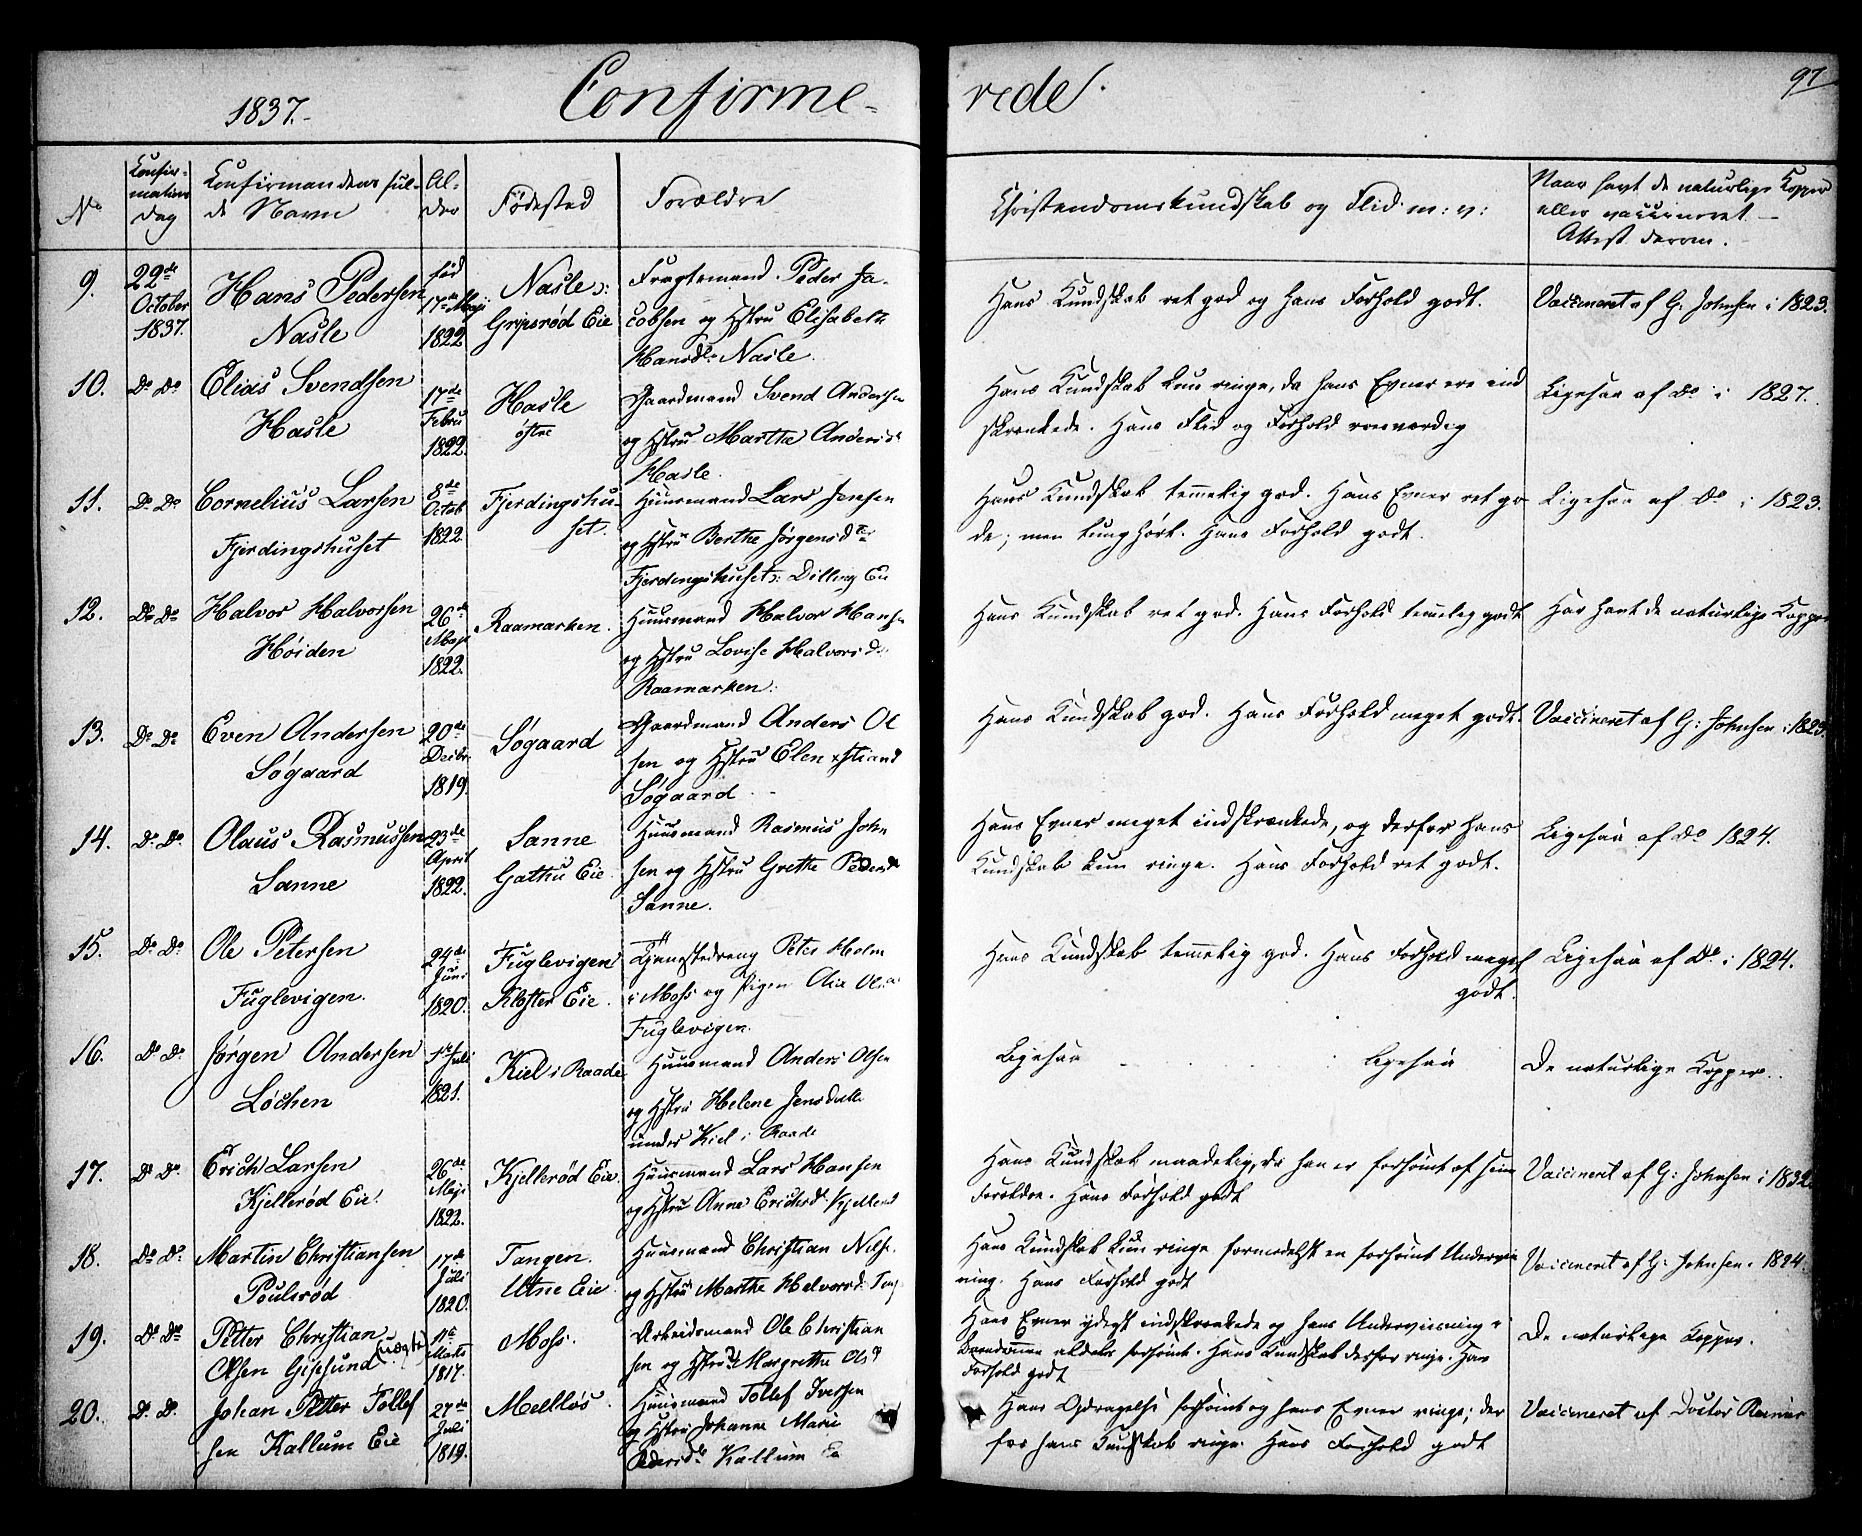 1837.
Confirme-
rede.
97
No
Confir-
mations
dag
Confirmandens ful-
de Navn
Al-
der
Fødested
Forældre
Christendomskundskab og Flid m: v:
Naar havt de naturlige Kopper
eller vaccineret
Attest derom.
9.
22de
October
1837.
Hans Pedersen
Nasle
fød
17de Maji
1822
Nasle
Gripsrød Eie
Fragtemand Peder Ja-
cobsen og Hstru Elisabeth
Hansd. Nasle.
Hans Kundskab ret god og hans Forhold godt.
Vaccineret af G: Johnsen i 1823.
10.
Do Do
Elias Svendsen
Hasle
17de
Febru
1822.
Hasle
østre
Gaardmand Svend Andersen
og Hstru Marthe Andersd.
Hasle.
Hans Kundskab kun ringe, da hans Evner ere ind
skrænkede. Hans Flid og Forhold roesværdig
Ligesaa af do i 1827.
11.
Do Do
Cornelius Larsen
Fjerdingshuset
8de
Octob
1822.
Fjerdingshu-
set.
Huusmand Lars Jensen
og Hstru Berthe Jørgensd.
Fjerdingshuset: Dilling Eie
Hans Kundskab temmelig god. Hans Evner ret go
de; men tunghørt. Hans Forhold godt.
Ligesaa af Do i 1823.
12.
Do Do
Halvor Halvorsen
Høiden
26de
Maji
1822.
Raamarken.
Huusmand Halvor Hansen
og Hstru Lovise Halvorsd.
Raamarken.
Hans Kundskab ret god. Hans Forhold temmelig godt
Har havt de naturlige Kopper
13.
Do Do
Even Andersen
Søgaard
20de
Decbr.
1819.
Søgaard
Gaardmand Anders Ol
sen og Hstru Elen
Søgaard
Hans Kundskab god. Hans Forhold meget godt.
Vaccineret af G: Johnsen i 1823.
14.
Do Do
Olaus Rasmussen
Sanne
23de
April
1822.
Sanne
Gathu Eie
Huusmand Rasmus John
sen og Hstru Grethe Pedersd.
Sanne.
Hans Evner meget indskrænkede, og derfor hans
Kundskab kun ringe. Hans Forhold ret godt.
Ligesaa af do 1824.
15.
Do Do
Ole Petersen
Fuglevigen.
24de
Juni
1820.
Fuglevigen
Kloster Eie.
Tjenestedreng Peter Holm
i Moss og Pigen
Fuglevigen.
Hans Kundskab temmelig god. Hans Forhold meget
godt.
Ligesaa af Do i 1824.
16.
Do Do
Jørgen Andersen
Løchen
1de Juli
1821.
Kiel i Raade
Huusmand Anders Olsen
og Hstru Helene Jensdatter
under Kiel i Raade
Ligesaa
Ligesaa
De naturlige Kopper.
17.
Do Do
Erich Larsen
Kjellerød Eie.
26de
Maji
1822.
Kjellerød Eie.
Huusmand Lars Hansen
og Hstru Anne Erichsd. Kjellerød
Hans Kundskab maadelig, da han er forsømt af sine
Forældre. Hans Forhold godt
Vaccineret af G: Johnsen i 1832.
18.
Do Do
Martin Christiansen
Poulerød
17de
Juli
1820.
Tangen
Utne Eie
Huusmand Christian Nils.
og Hstru Marthe Halvorsd. Tang
Hans Kundskab kun ringe formedelst en forsømt Underviis
ning. Hans Forhold godt
Vaccineret af G: Johnsen i 1824.
19.
Do Do
Petter Christian
Olsen Gipsund (uægte)
11te
Marts
1817.
Moss.
Arbeidsmand Ole Christian
sen og Hstru Margrethe Olsd
Hans Evner yderst indskrænkede og hans Underviisning i
Barndommen aldeles forsømt. Hans Kundskab derfor ringe. Hans
Forhold godt
De naturlige Kopper.
20.
Do Do
Johan Petter Tollef
sen Kallum Eie
27de
Juli
1819.
Melløs.
Huusmand Tollef Iversen
og Hstru Johanne Marie
Pedersd. Kallum Eie
Hans Opdragelse forsømt og hans Evner ringe; der
for hans Kundskab ringe. Hans Forhold godt
Vaccineret af Doctor